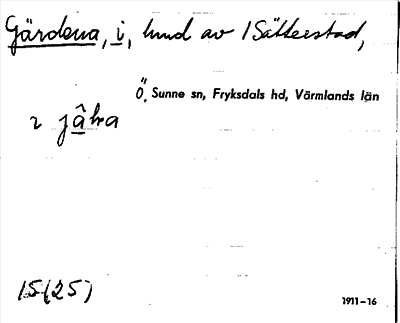 Gärdena, i, hmd av 1 Sätterstad,
Ö. Sunne sn, Fryksdals hd, Värmlands län
2 jâra
15(25)
1911-16